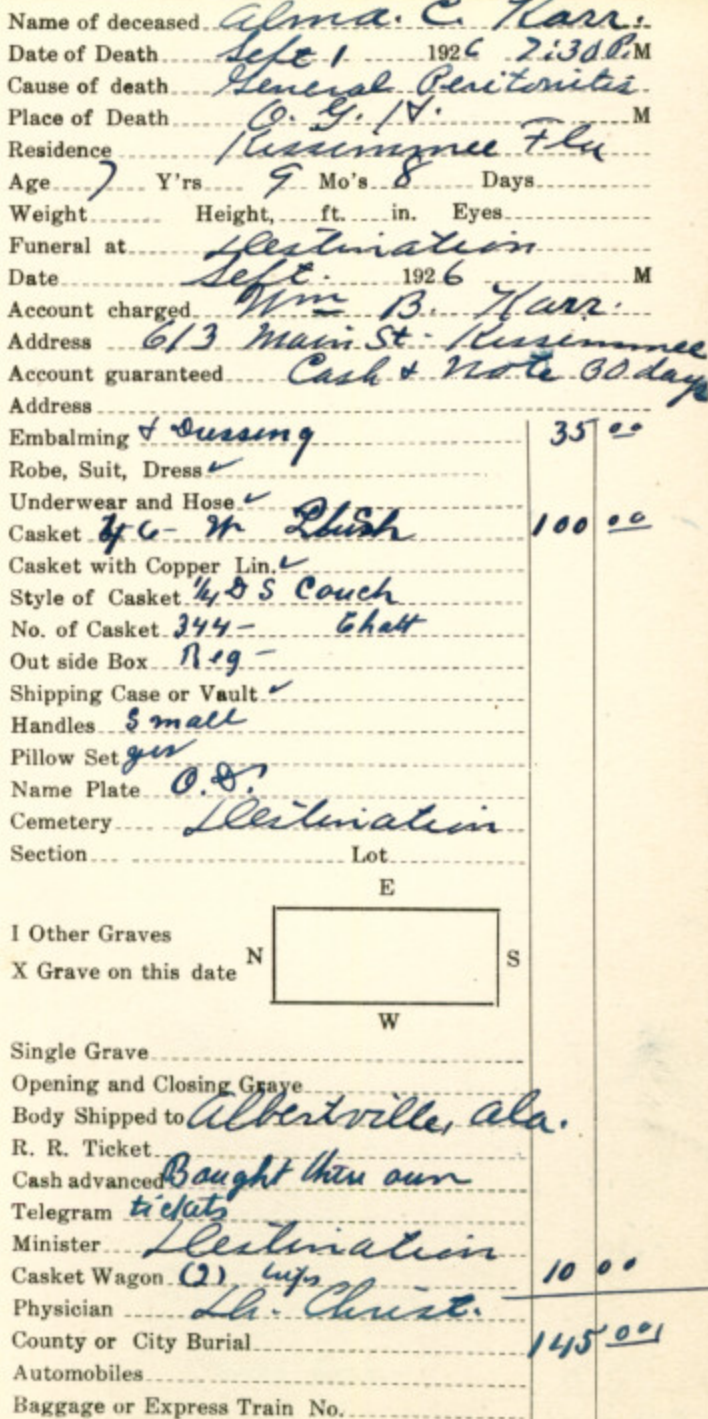 Name of deceased Alma. C. Karr.
Date of Death Sept 1 1926 7:30 P.M
Cause of death General Peritonitis
Place of Death O. G. H. M
Residence Kissimmee Fla
Age 7 Y'rs 9 Mo's 8 Days
Weight Height, ft. in. Eyes
Funeral at Destination
Date Sept. 1926 M
Account charged Wm B. Karr.
Address 613 Main St. Kissimmee
Account guaranteed Cash & Note 30 days
Address
Embalming & Dressing 35 00
Robe, Suit, Dress ✓
Underwear and Hose ✓
Casket 4/6 - W Plush 100 00
Casket with Copper Lin. ✓
Style of Casket 1/4 D S Couch
No. of Casket 344 - Chatt
Out side Box Reg -
Shipping Case or Vault ✓
Handles Small
Pillow Set yes
Name Plate O.D.
Cemetery Destination
Section Lot
E
I Other Graves
N S
X Grave on this date
W
Single Grave
Opening and Closing Grave
Body Shipped to Albertville, Ala.
R. R. Ticket
Cash advanced Bought their own
Telegram tickets
Minister Destination
Casket Wagon (2) trips 10 00
Physician Dr. Christ.
County or City Burial 145 00
Automobiles
Baggage or Express Train No.